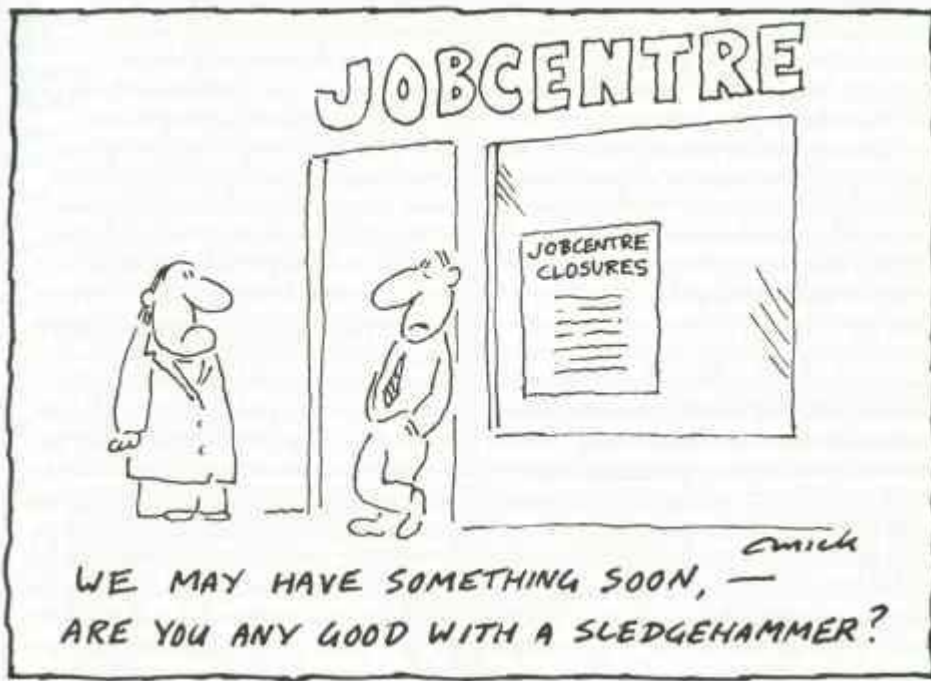 JOBCENTRE
JOBCENTRE
CLOSURES
WE MAY HAVE SOMETHING SOON, —
ARE YOU ANY GOOD WITH A SLEDGEHAMMER?